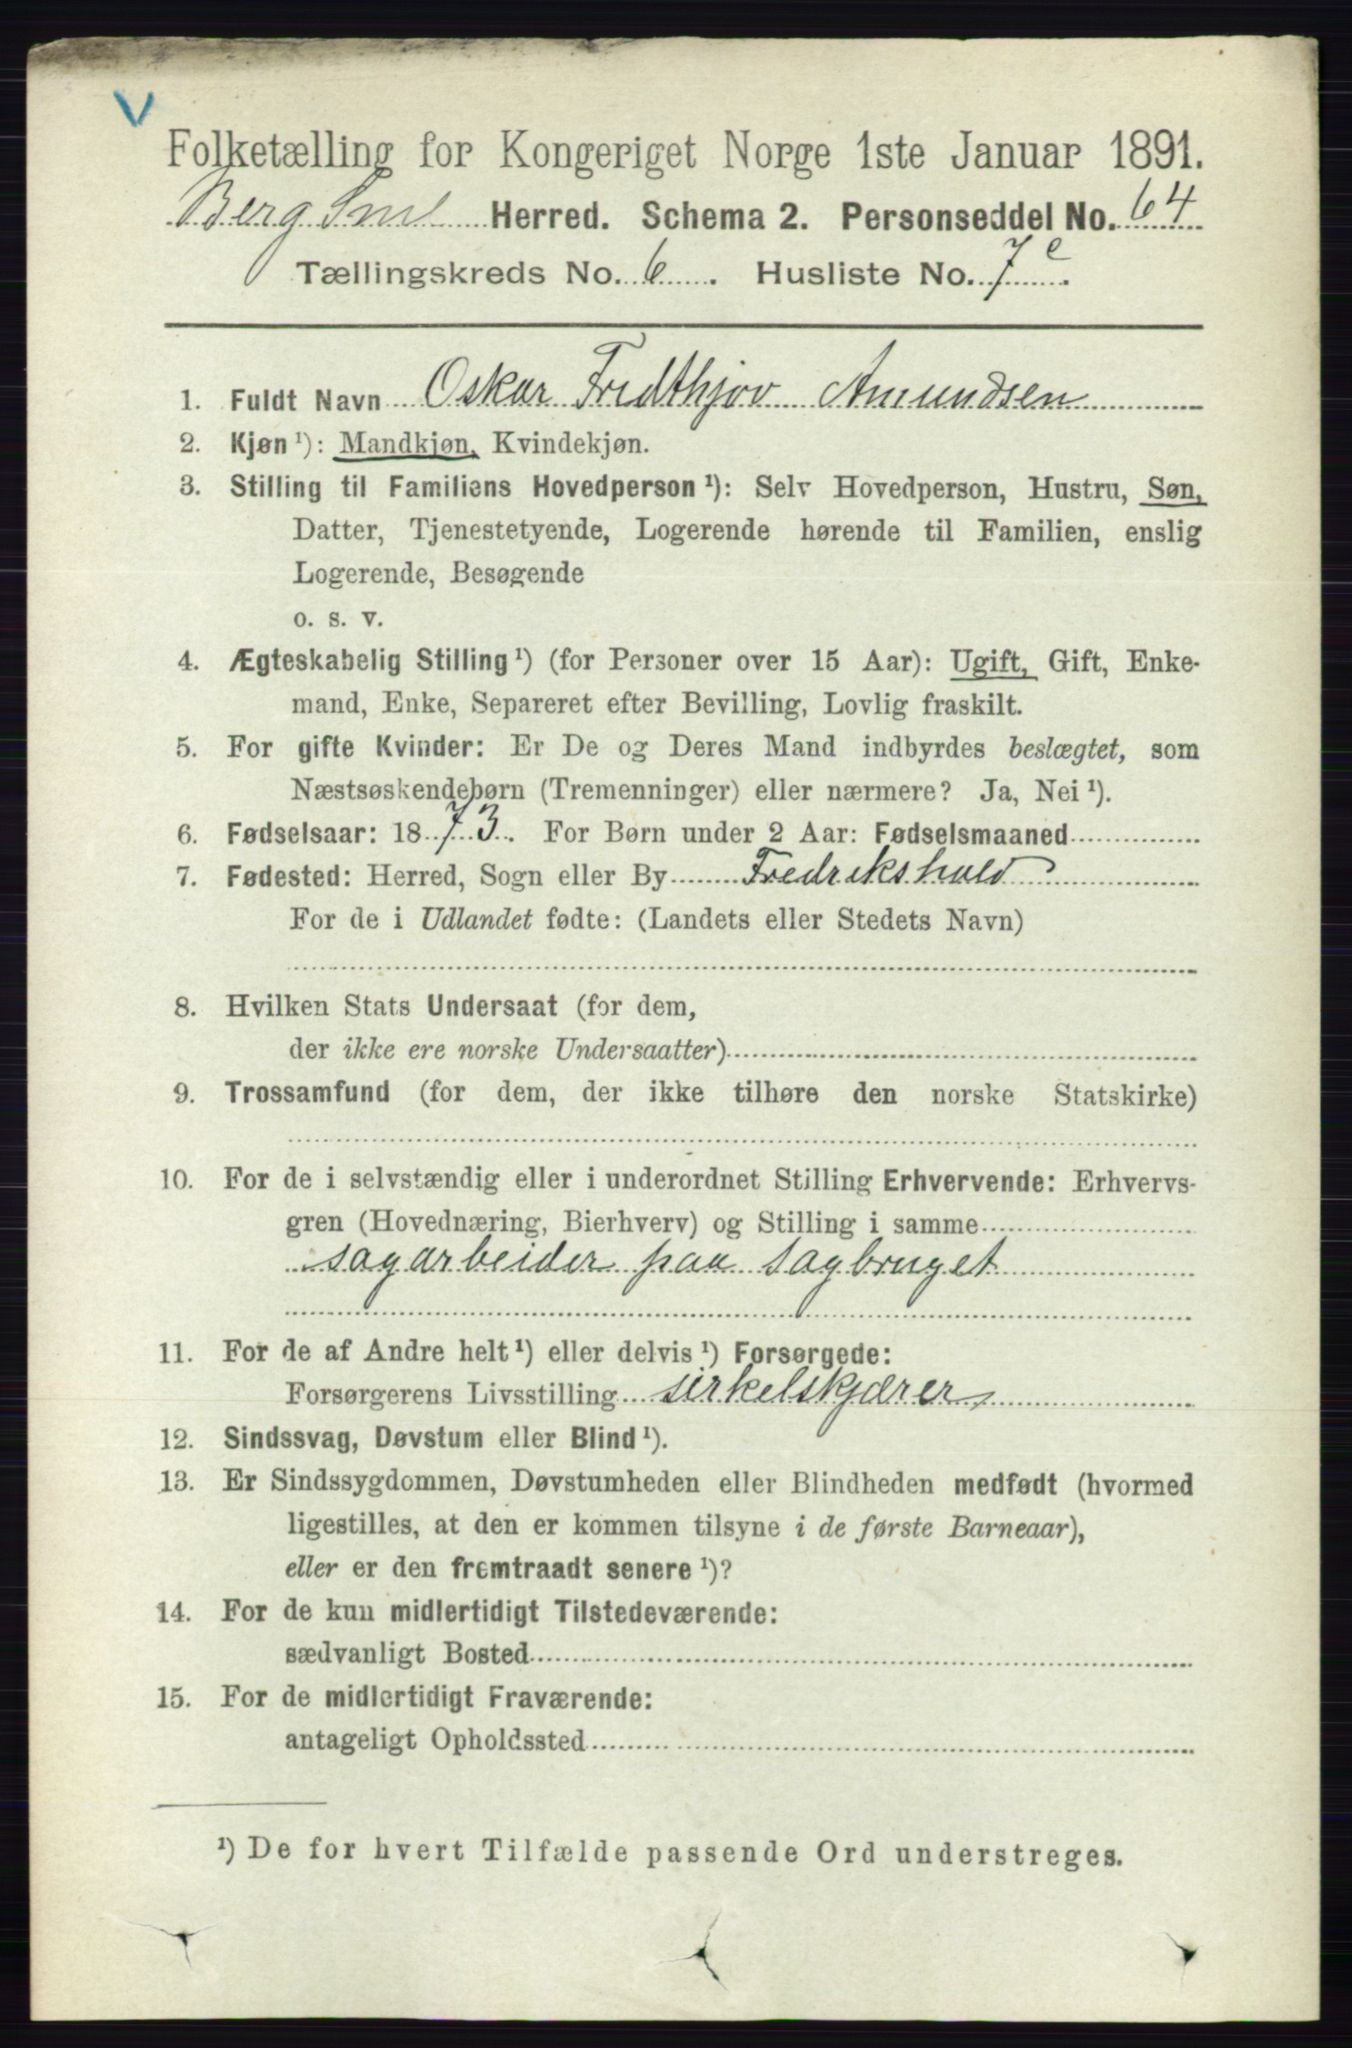 V
Folketælling for Kongeriget Norge 1ste Januar 1891.
Berg Sml Herred. Schema 2. Personseddel No. 64
Tællingskreds No. 6. Husliste No. 7c.
1. Fuldt Navn Oskar Fredthjov Amundsen
2. Kjøn ¹): Mandkjøn, Kvindekjøn.
3. Stilling til Familiens Hovedperson ¹): Selv Hovedperson, Hustru, Søn,
Datter, Tjenestetyende, Logerende hørende til Familien, enslig
Logerende, Besøgende
o. s. v.
4. Ægteskabelig Stilling ¹) (for Personer over 15 Aar): Ugift, Gift, Enke-
mand, Enke, Separeret efter Bevilling, Lovlig fraskilt.
5. For gifte Kvinder: Er De og Deres Mand indbyrdes beslægtet, som
Næstsøskendebørn (Tremenninger) eller nærmere? Ja, Nei ¹).
6. Fødselsaar: 1873. For Børn under 2 Aar: Fødselsmaaned
7. Fødested: Herred, Sogn eller By Fredrikshald
For de i Udlandet fødte: (Landets eller Stedets Navn)
8. Hvilken Stats Undersaat (for dem,
der ikke ere norske Undersaatter)
9. Trossamfund (for dem, der ikke tilhøre den norske Statskirke)
10. For de i selvstændig eller i underordnet Stilling Erhvervende: Erhvervs-
gren (Hovednæring, Bierhverv) og Stilling i samme
sagarbeider paa sagbruget
11. For de af Andre helt ¹) eller delvis ¹) Forsørgede:
Forsørgerens Livsstilling sirkelskjærer
12. Sindssvag, Døvstum eller Blind ¹).
13. Er Sindssygdommen, Døvstumheden eller Blindheden medfødt (hvormed
ligestilles, at den er kommen tilsyne i de første Barneaar),
eller er den fremtraadt senere ¹)?
14. For de kun midlertidigt Tilstedeværende:
sædvanligt Bosted
15. For de midlertidigt Fraværende:
antageligt Opholdssted
¹) De for hvert Tilfælde passende Ord understreges.